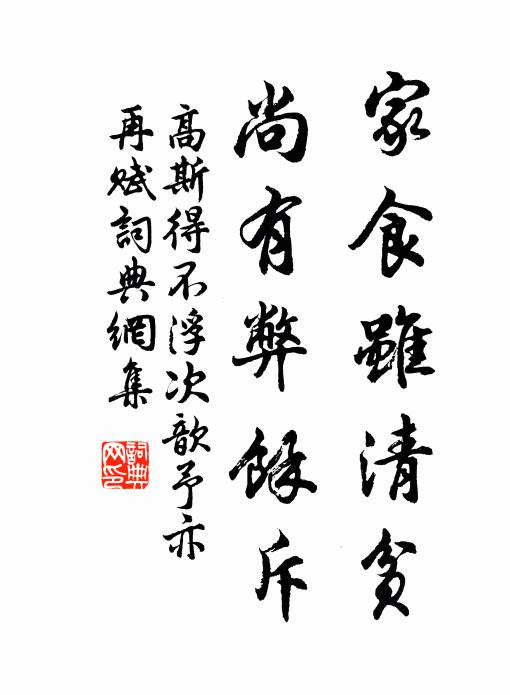 家食雖清貧
尚有弊餘斥
高斯得不浮次歆予亦
再赋詞典網集
詞典网印